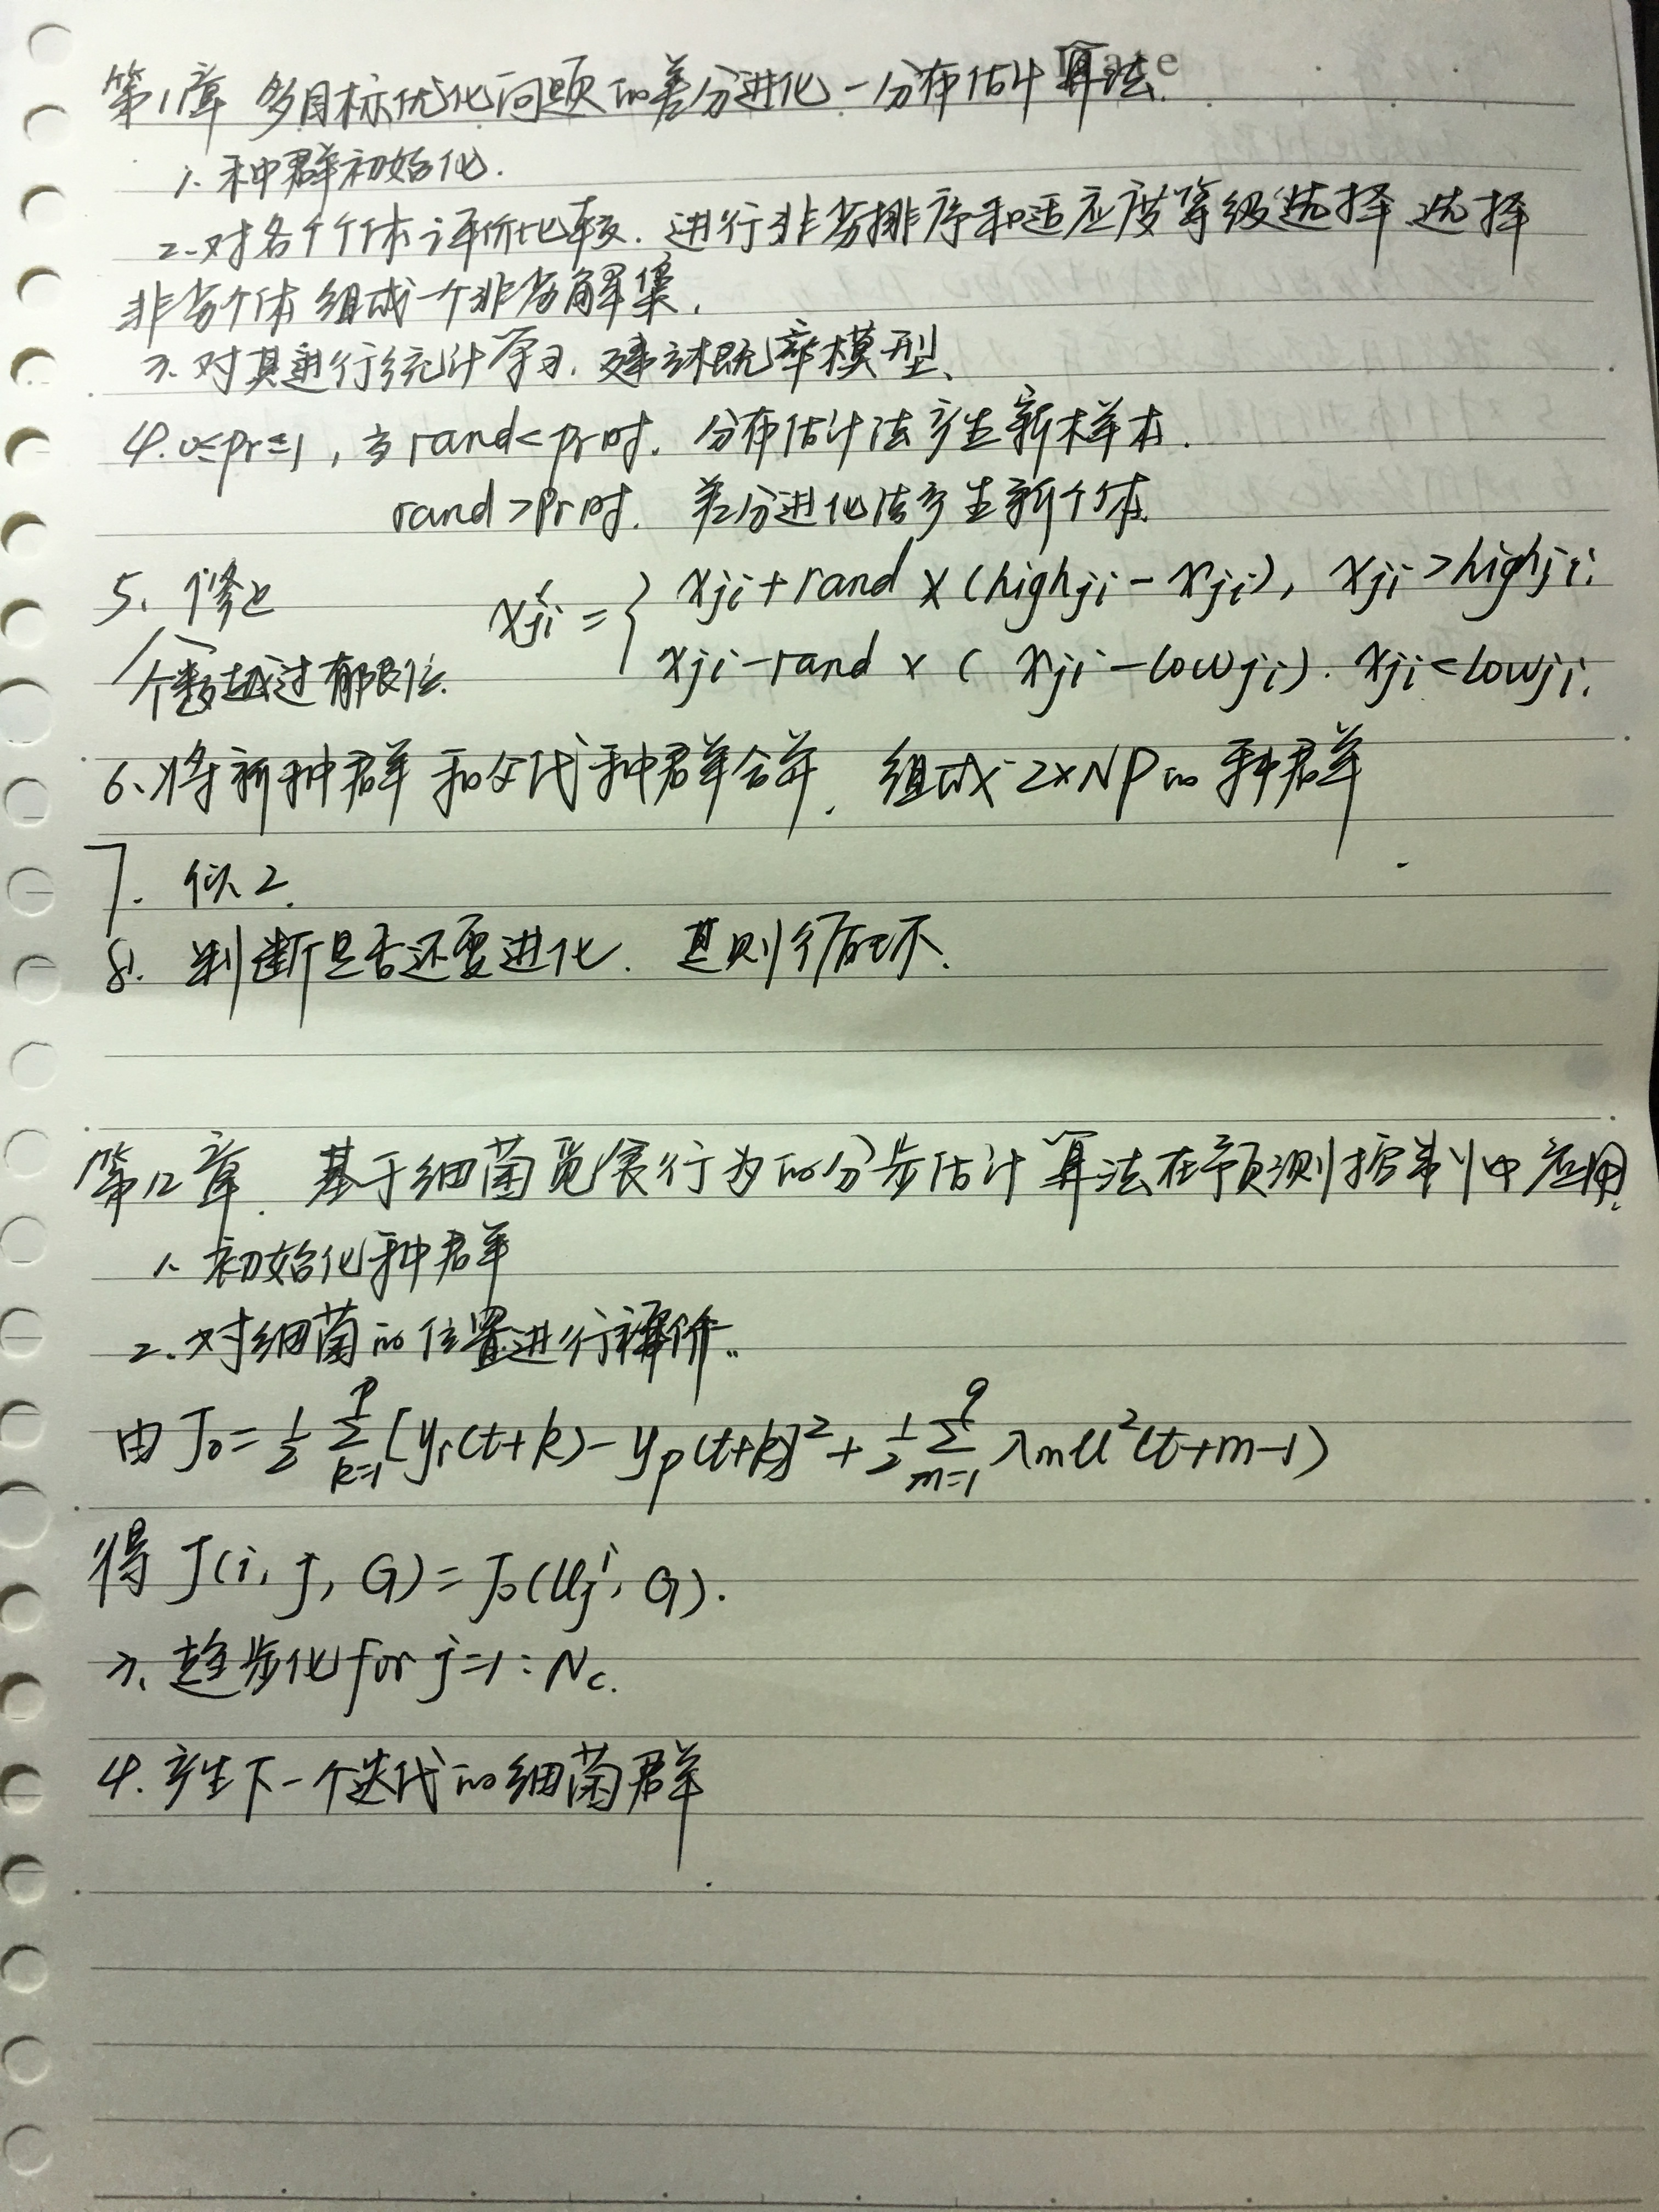 Date
第11章 多目标优化问题的差分进化-分布估计算法.
1. 种群初始化.
2. 对各个个体评价比较. 进行非劣排序和适应度等级选择 选择
非劣个体组成一个非劣解集.
3. 对其进行统计学习. 建立概率模型、
4. 0≤Pr≤1, 当rand<Pr时. 分布估计法产生新样本.
rand>Pr时. 差分进化法产生新个体.
5. 修
xji' = { xji+rand×(highji-xji), xji>highji;
xji-rand×(xji-lowji). xji<lowji;
个数越过 限位.
6. 将新种群和父代种群合并. 组成2×NP的种群
7. 似2.
8. 判断是否还要进化.
第12章. 基于细菌觅食行为的分步估计算法在预测控制中应用.
1. 初始化种群
2. 对细菌的位置进行评价.
由 J0=1/2 Σ(k=1→P)[yr(t+k)-yp(t+k)]²+1/2 Σ(m=1→q) λmu²(t+m-1)
得 J(i, j, G)=J0(Uji, G).
3. 趋步化 for j=1:Nc.
4. 产生下一个迭代的细菌群